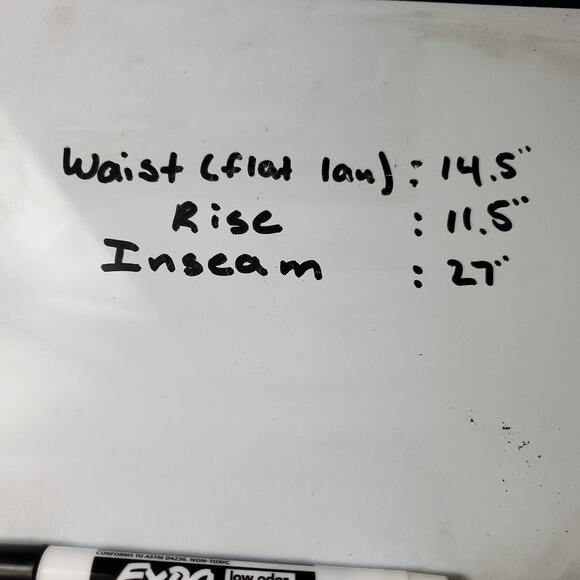 Waist (flat lay) : 14.5"
Rise : 11.5"
Inseam : 27"
CONFORMS TO ASTM D4236. NON-TOXIC
EXPO low odor